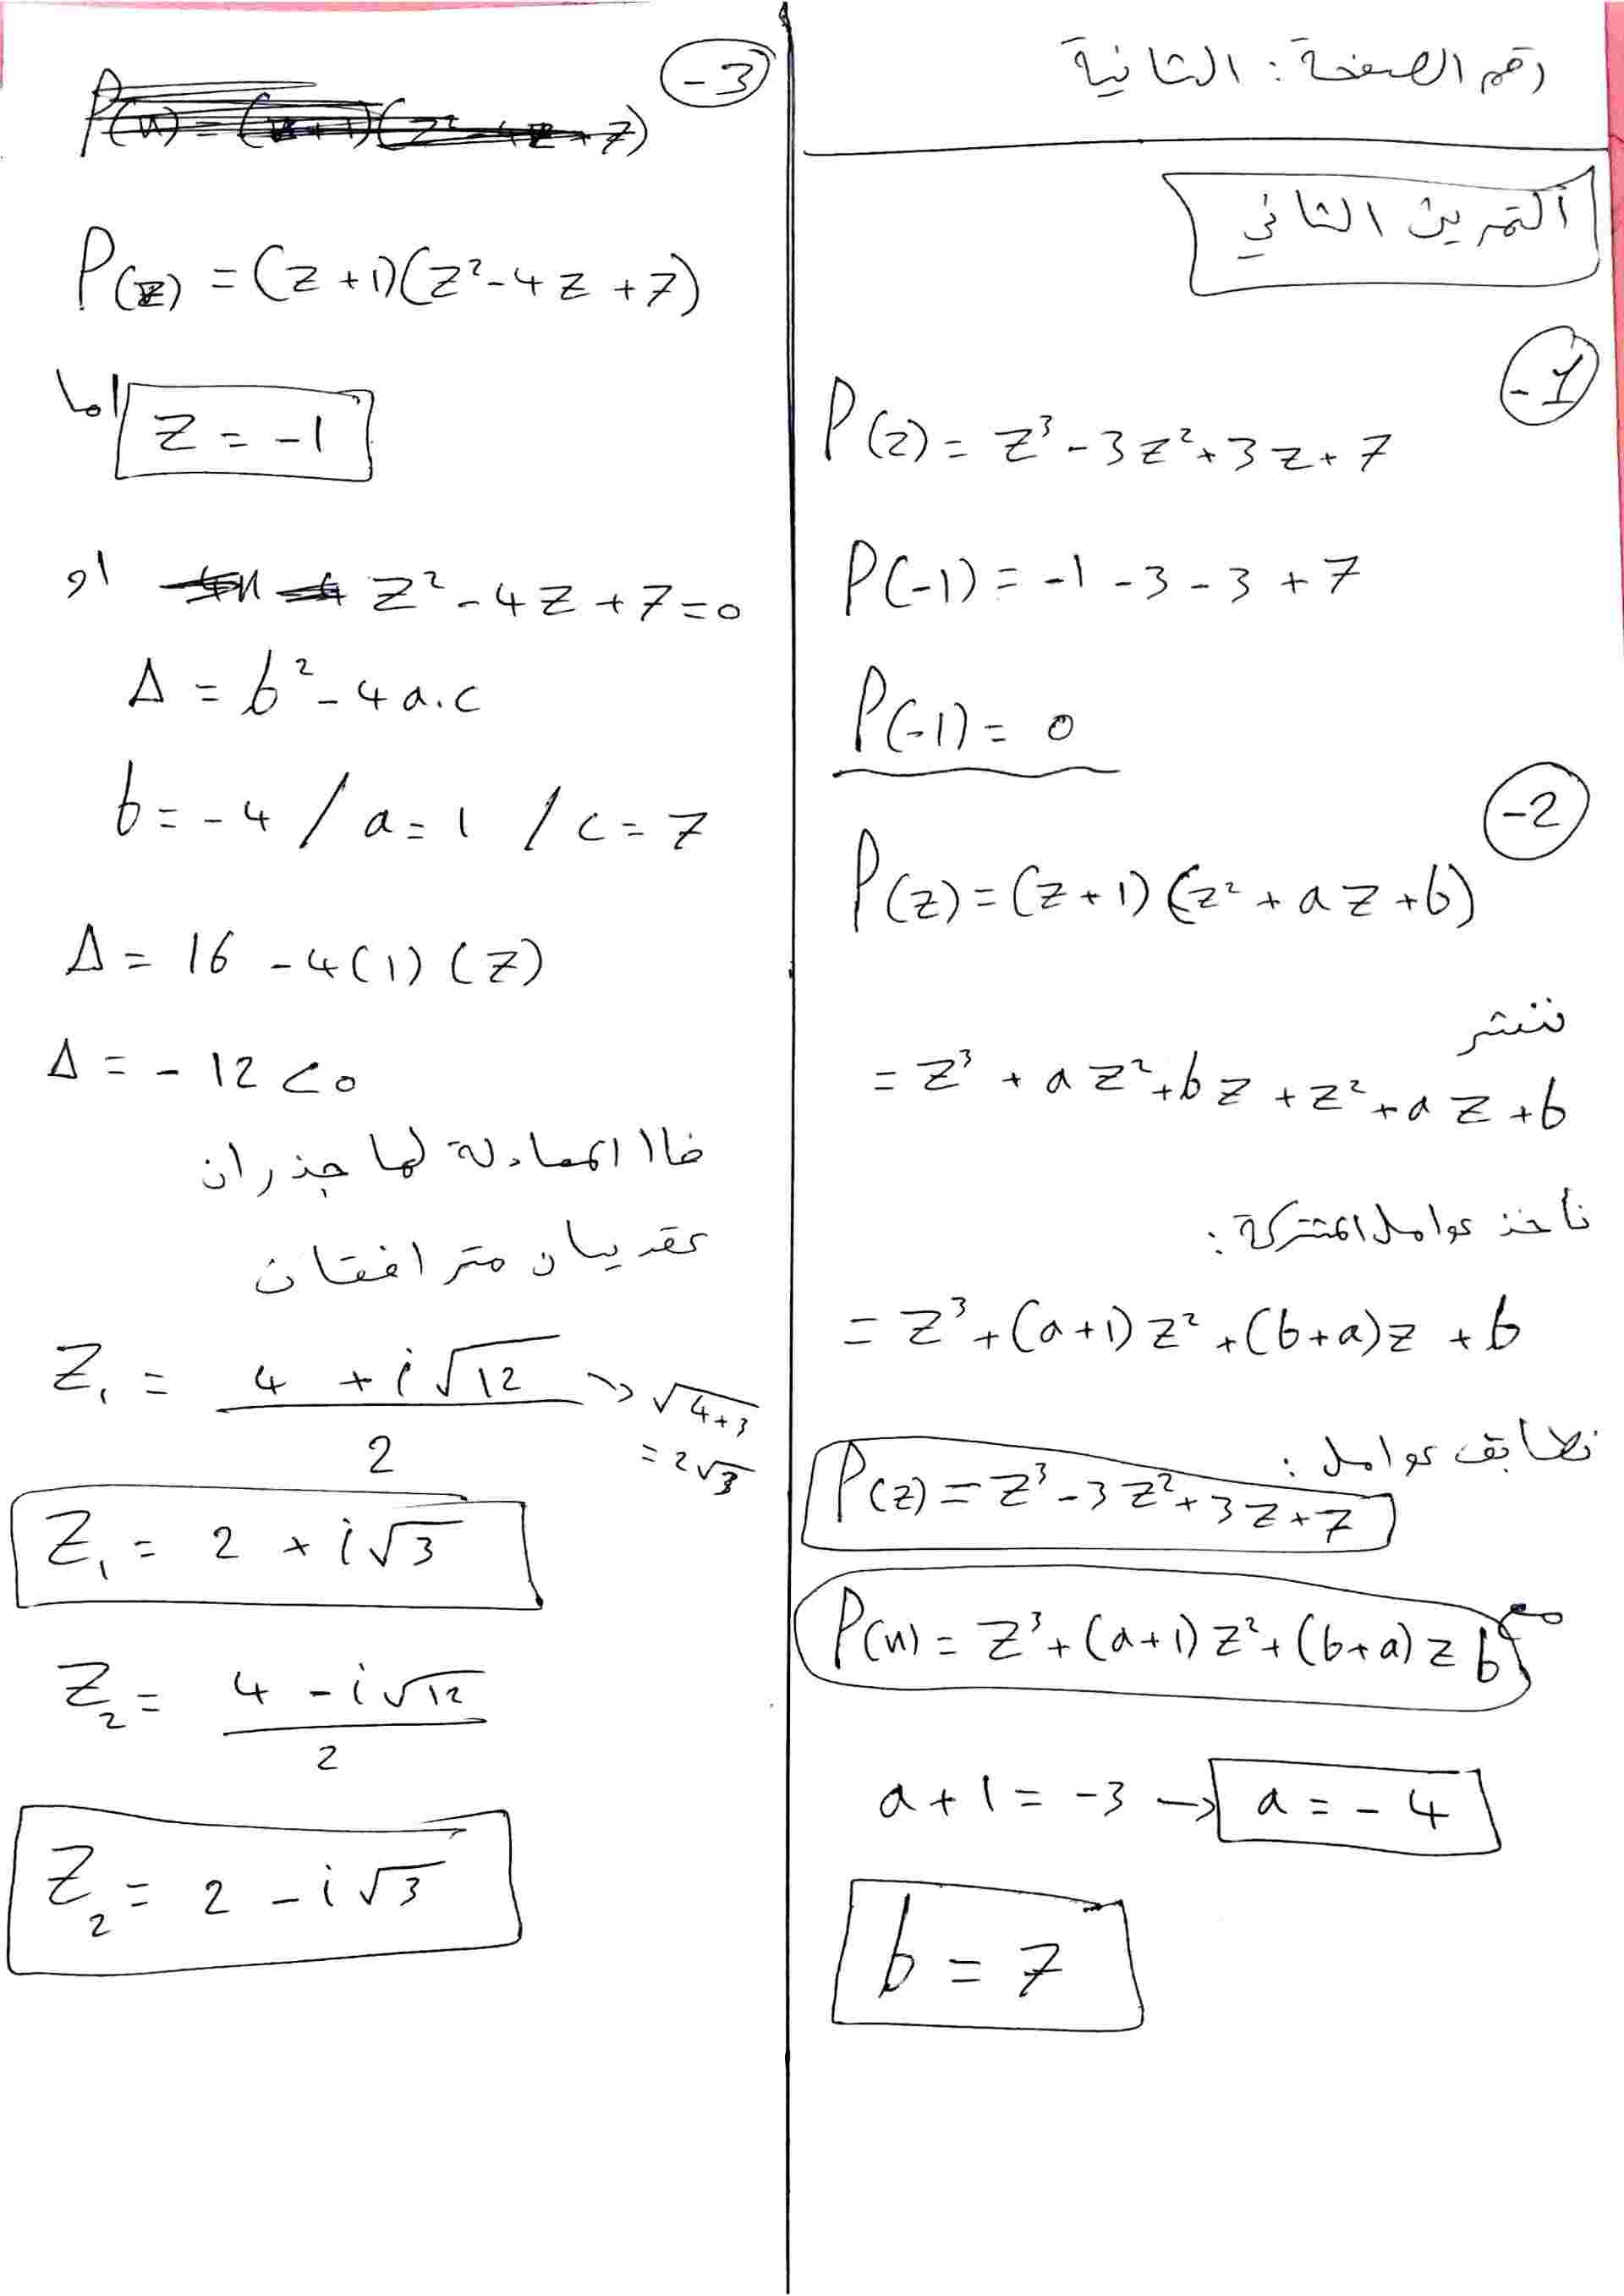 رقم الصفحة: الثانية
التمرين الثاني
1-
P(z) = z³ - 3z² + 3z + 7
P(-1) = -1 - 3 - 3 + 7
P(-1) = 0
2-
P(z) = (z + 1)(z² + az + b)
ننشر
= z³ + az² + bz + z² + az + b
ناخذ عوامل المشتركة:
= z³ + (a+1)z² + (b+a)z + b
نطابق عوامل:
P(z) = z³ - 3z² + 3z + 7
P(n) = z³ + (a+1)z² + (b+a)z b
a + 1 = -3 → a = -4
b = 7
3-
P(z) = (z + 1)(z² - 4z + 7)
اما z = -1
او z² - 4z + 7 = 0
Δ = b² - 4a.c
b = -4 / a = 1 / c = 7
Δ = 16 - 4(1)(7)
Δ = -12 < 0
فاا المعادلة لها جذران
عقديان مترافقان
Z₁ = (4 + i√12)/2 → √4+3
= 2√3
Z₁ = 2 + i√3
Z₂ = (4 - i√12)/2
Z₂ = 2 - i√3